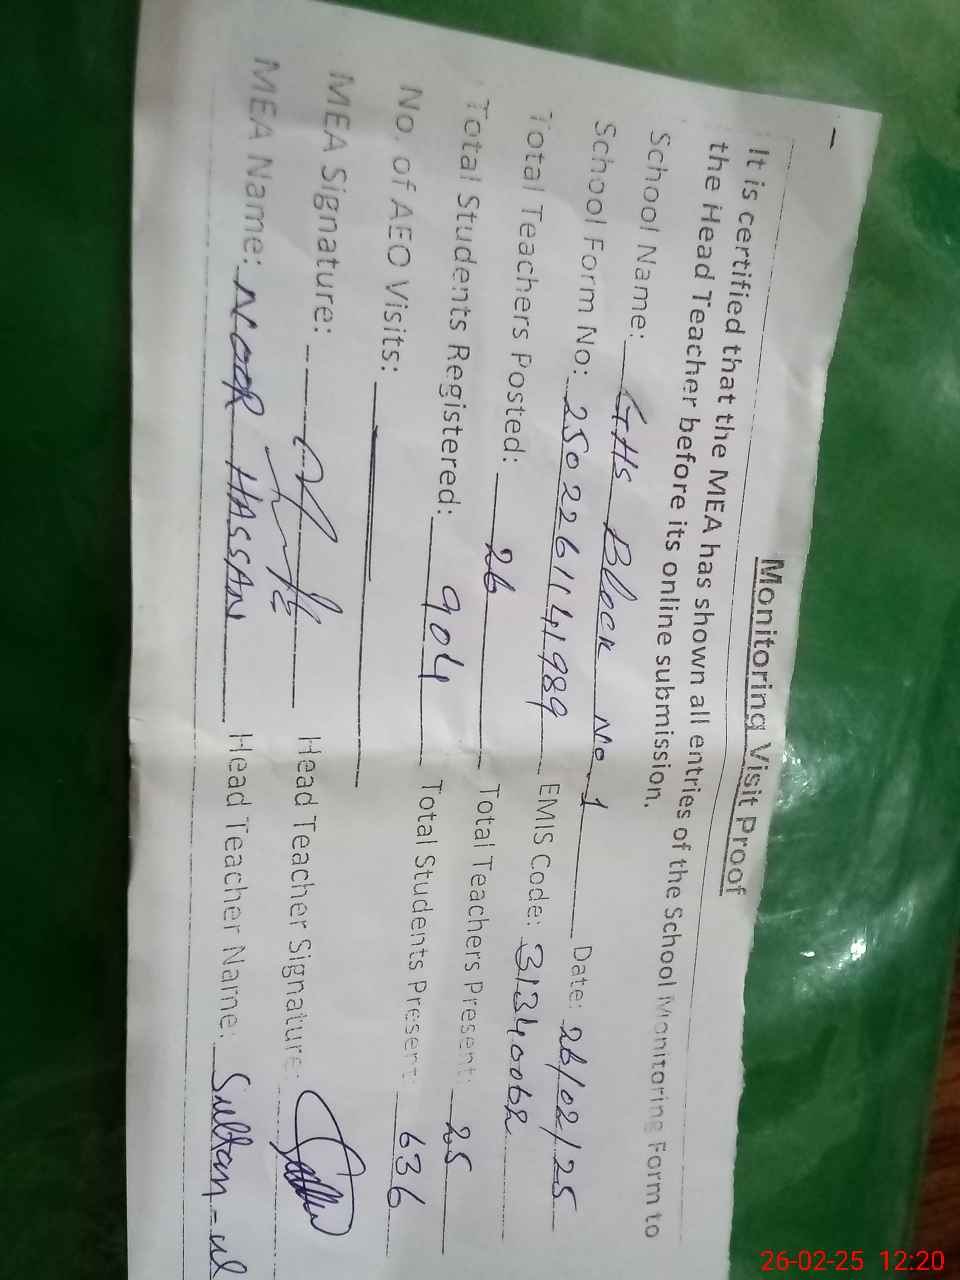 Monitoring Visit Proof
It is certified that the MEA has shown all entries of the School Monitoring Form to
the Head Teacher before its online submission.
School Name: GHS Block No 1 Date: 26/02/25
School Form No: 2502261141989 EMIS Code: 31340062
Total Teachers Posted: 26 Total Teachers Present: 25
Total Students Registered: 904 Total Students Present: 636
No. of AEO Visits:
MEA Signature: Head Teacher Signature:
MEA Name: NOOR HASSAN Head Teacher Name: Sultan-ul
26-02-25 12:20